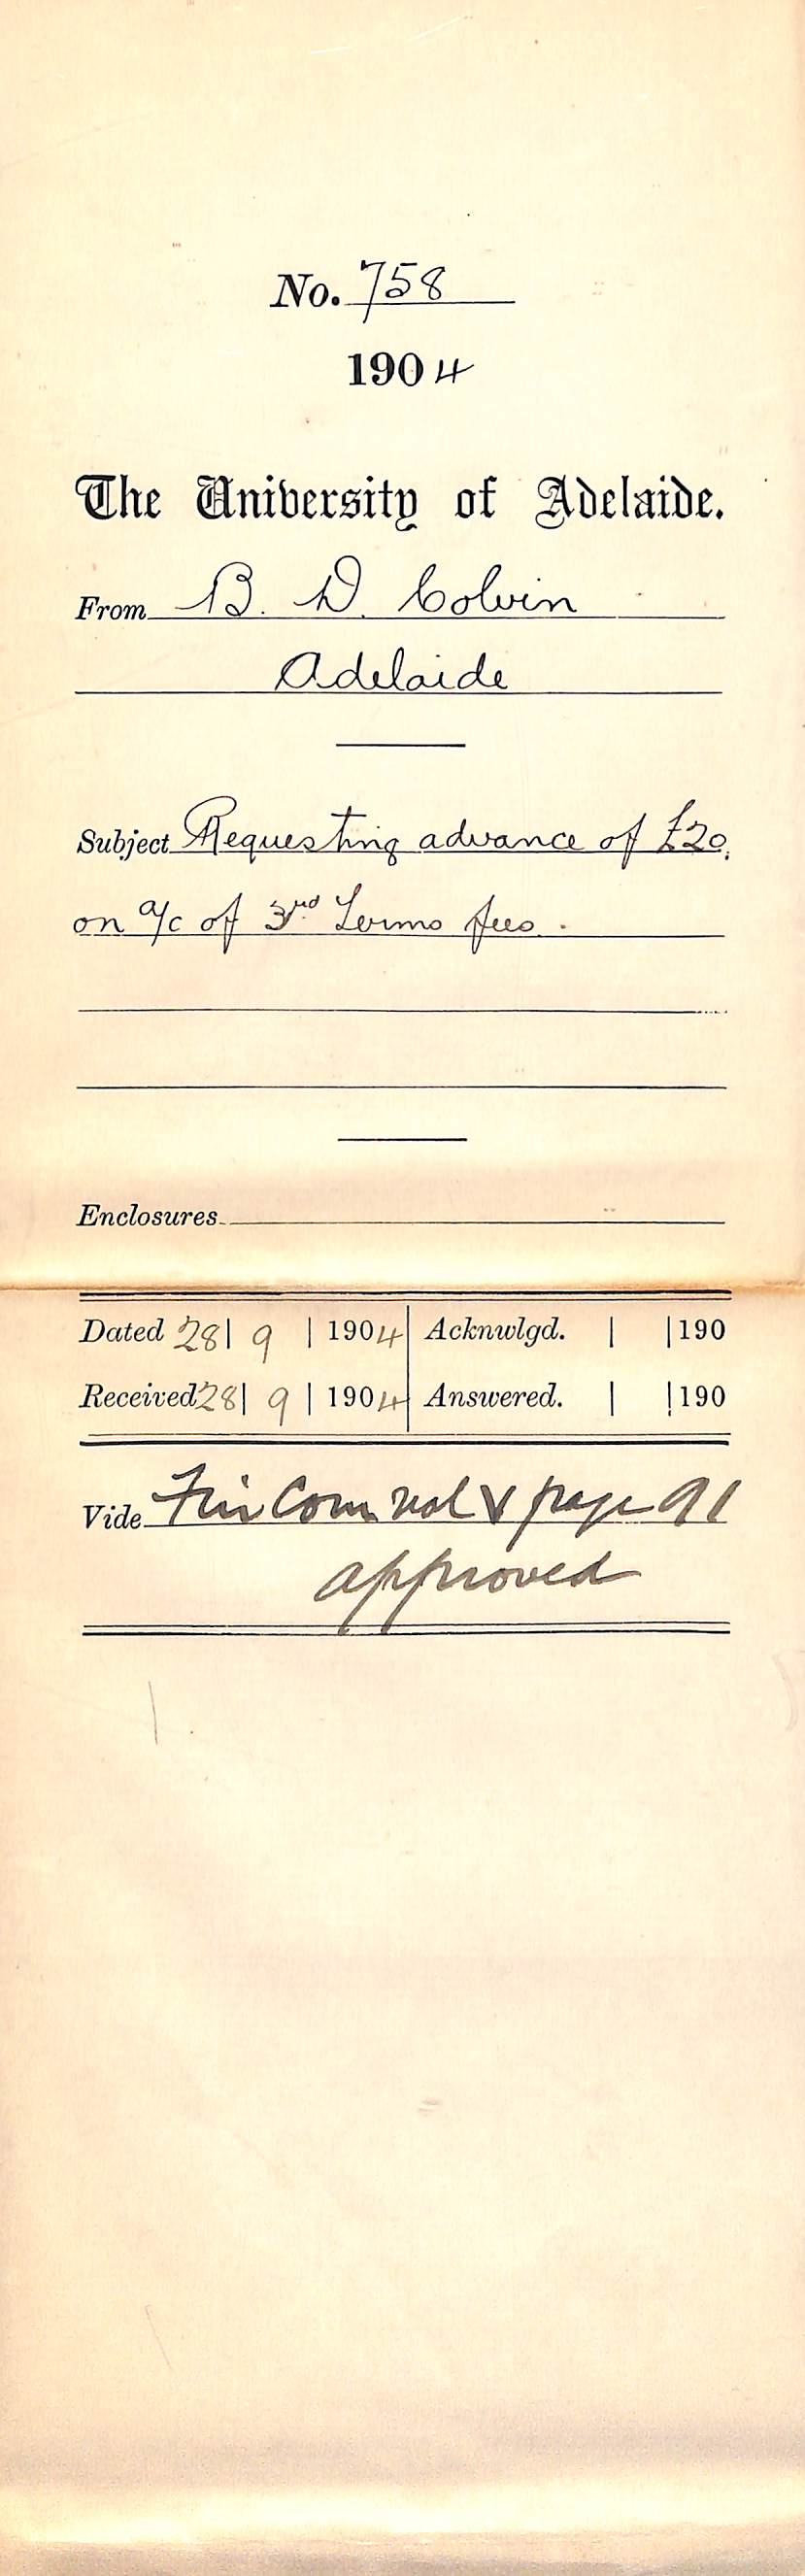 No. 758
1904
The University of Adelaide.
From B. D. Colvin
Adelaide
Subject Requesting advance of £20,
on a/c of 3rd Terms fees.
Enclosures
Dated 28| 9 | 1904 Acknwlgd. | |190
Received 28| 9 | 1904 Answered. | |190
Vide Fin Com vol V page 91
approved